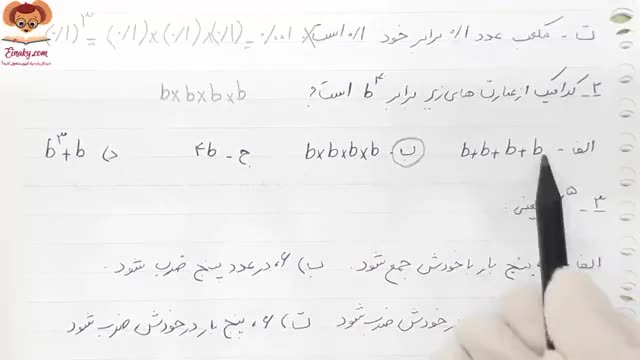 Einaky.com
ت - مکعب عدد ۰/۱ برابر خود ۰/۱ است) ۰/۰۰۱ = (۰/۱)×(۰/۱)×(۰/۱) = (۰/۱)³
۲- کدامیک از عبارت های زیر برابر b⁴ است? b×b×b×b
الف - b+b+b+b ب - b×b×b×b ج - ۴b د) b³+b
۳ - ۵ یعنی:
الف پنج بار با خودش جمع شود ب) ۶، در عدد پنج ضرب شود.
در خودش ضرب شود ت) ۶، پنج بار در خودش ضرب شود